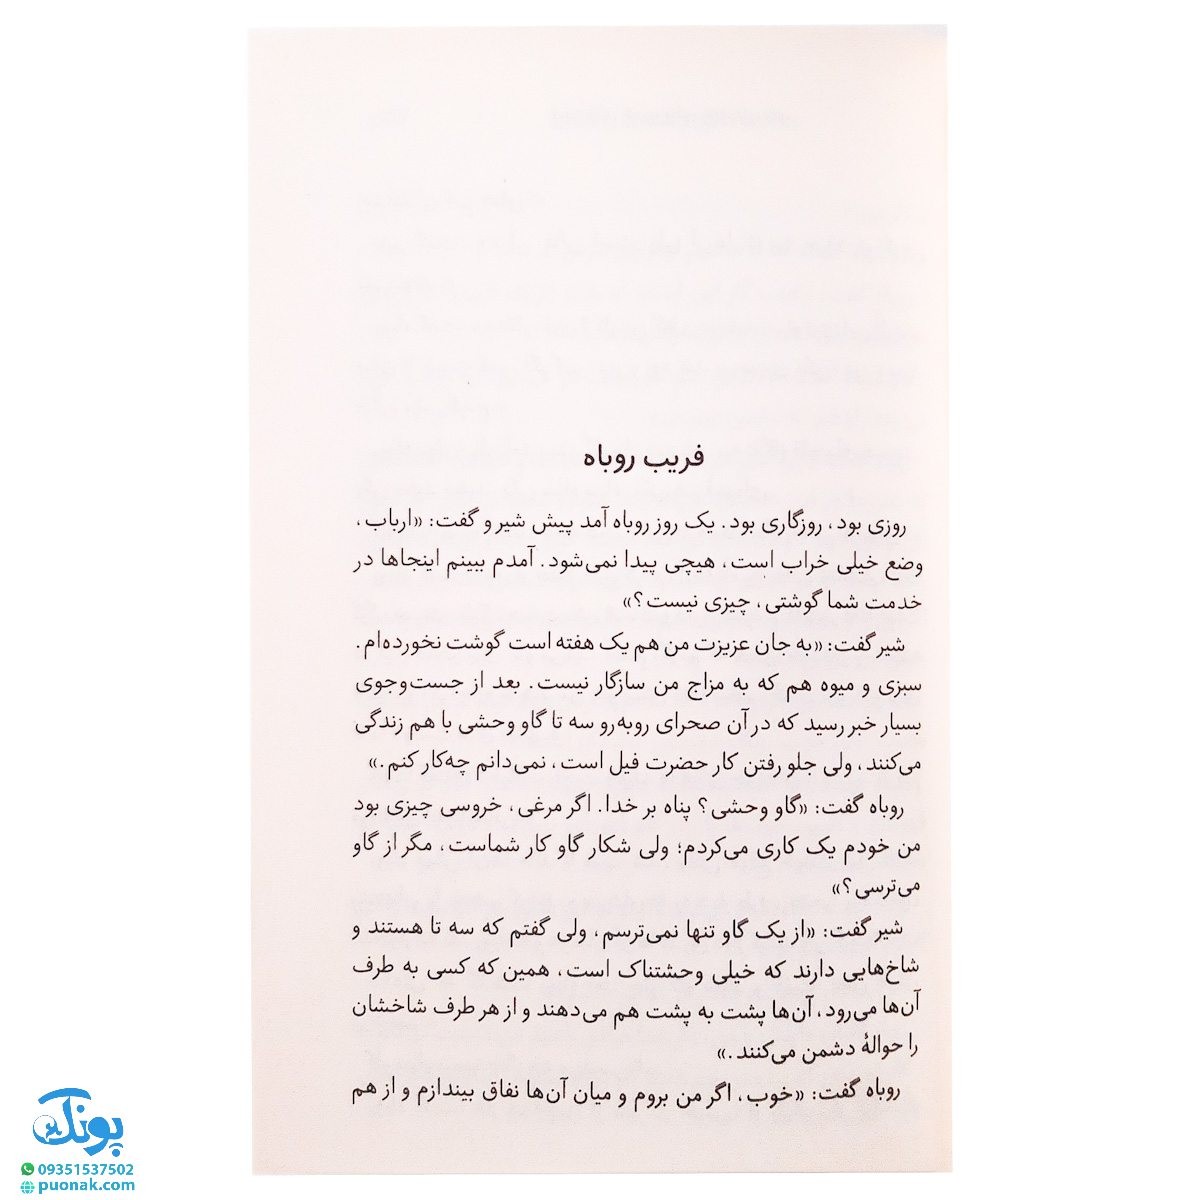 فریب روباه
روزی بود، روزگاری بود. یک روز روباه آمد پیش شیر و گفت: «ارباب،
وضع خیلی خراب است، هیچی پیدا نمی‌شود. آمدم ببینم اینجاها در
خدمت شما گوشتی، چیزی نیست؟»
شیر گفت: «به جان عزیزت من هم یک هفته است گوشت نخورده‌ام.
سبزی و میوه هم که به مزاج من سازگار نیست. بعد از جست‌وجوی
بسیار خبر رسید که در آن صحرای روبه‌رو سه تا گاو وحشی با هم زندگی
می‌کنند، ولی جلو رفتن کار حضرت فیل است، نمی‌دانم چه‌کار کنم.»
روباه گفت: «گاو وحشی؟ پناه بر خدا. اگر مرغی، خروسی چیزی بود
من خودم یک کاری می‌کردم؛ ولی شکار گاو کار شماست، مگر از گاو
می‌ترسی؟»
شیر گفت: «از یک گاو تنها نمی‌ترسم، ولی گفتم که سه تا هستند و
شاخ‌هایی دارند که خیلی وحشتناک است، همین که کسی به طرف
آن‌ها می‌رود، آن‌ها پشت به پشت هم می‌دهند و از هر طرف شاخشان
را حوالهٔ دشمن می‌کنند.»
روباه گفت: «خوب، اگر من بروم و میان آن‌ها نفاق بیندازم و از هم
پونک
09351537502
puonak.com